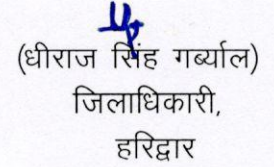 (धीराज सिंह गर्ब्याल)
जिलाधिकारी,
हरिद्वार